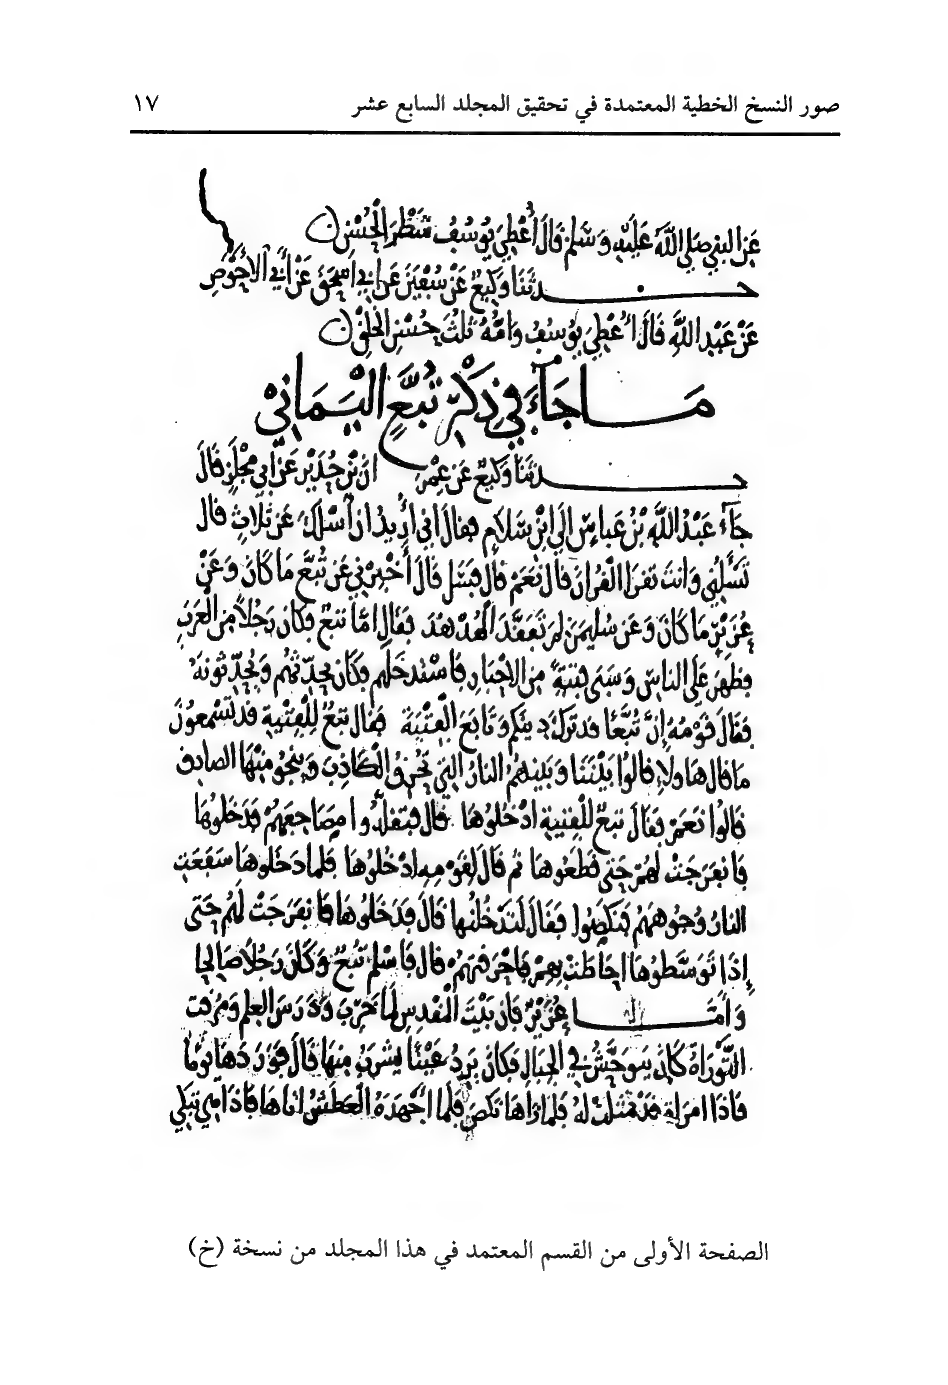 صور النسخ الخطية المعتمدة في تحقيق المجلد السابع عشر ١٧
عن النبي صلى الله عليه وسلم قال أعطي يوسف شطر الحسن
حدثنا وكيع عن سفين عن أبي إسحق عن أبي الأحوص
عن عبد الله قال أعطي يوسف وأمه ثلث حسن الخلق
ما جاء في ذكر تبع اليماني
حدثنا وكيع عن عمران بن حدير عن أبي مجلز قال
جاء عبد الله بن عباس إلى ابن سلام فقال اني أريد ان أسلك عن ثلاث قال
تسلني وانت تقرا القران قال نعم قال فسل قال أخبرني عن تبع ما كان وعن
عزير ما كان وعن سليمن لم تفقد الهدهد فقال اما تبع فكان رجلا من العرب
فظهر على الناس وسبى فتية من الاحبار فاستدخلهم فكان يحدثهم ويحدثونه
فقال قومه إن تبعا قد ترك دينكم وتابع الفتية فقال تبع للفتية قد تسمعون
ما قال هاولاء قالوا بيننا وبينهم النار التي تحرق الكاذب وينجو منها الصادق
قالوا نعم فقال تبع للفتية ادخلوها قال فتقلدوا مصاحفهم فدخلوها
فانفرجت لهم حتى قطعوها ثم قال لقومه ادخلوها فلما دخلوها سفعت
النار وجوههم فنكصوا فقال لتدخلنها قال فدخلوها فانفرجت لهم حتى
إذا توسطوها احاطت بهم فاحرقتهم قال فاسلم تبع وكان رجلا صالحا
وأما عزير فان بيت المقدس لما خرب ودرس العلم ومزقت
التوراة كان يتوحش في الجبال فكان يرد عينا يشرب منها قال فوردها يوما
فاذا امراة قد تمثلت له فلما راها نكص فلما أجهده العطش اتاها فاذا هي تبكي
الصفحة الأولى من القسم المعتمد في هذا المجلد من نسخة (خ)